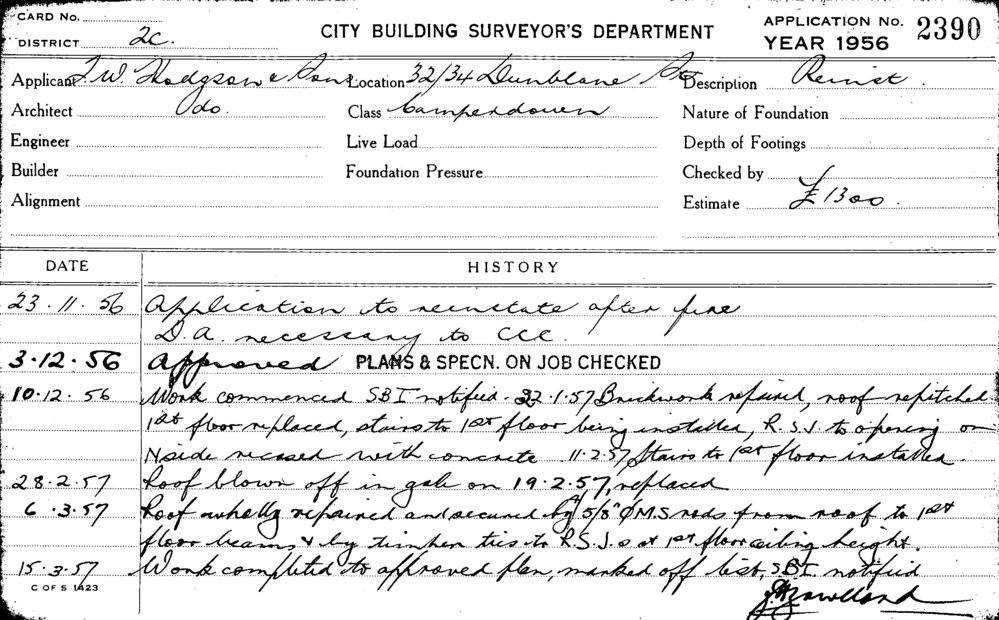 CARD No.
DISTRICT 2c.
CITY BUILDING SURVEYOR'S DEPARTMENT
APPLICATION No. 2390
YEAR 1956
Applicant T.W. Hodgson & Sons Location 32/34 Dunblane St Description Reinst.
Architect do. Class Camperdown Nature of Foundation
Engineer Live Load Depth of Footings
Builder Foundation Pressure Checked by
Alignment Estimate £1300.
DATE HISTORY
23.11.56 Application to reinstate after fire
D.A. necessary to CCC.
3.12.56 Approved PLANS & SPECN. ON JOB CHECKED
10.12.56 Work commenced SBI notified. 22.1.57 Brickwork repaired, roof repitched
1st floor replaced, stairs to 1st floor being installed, R.S.J. to opening on
N side encased with concrete 11.2.57 Stairs to 1st floor installed.
28.2.57 Roof blown off in gale on 19.2.57, replaced
6.3.57 Roof wholly repaired and secured by 4/5/8" Ø M.S rods from roof to 1st
floor beams & by timber ties to R.S.J.s at 1st floor ceiling height.
15.3.57 Work completed to approved plan, marked off list, SBI notified
C OF S 1423